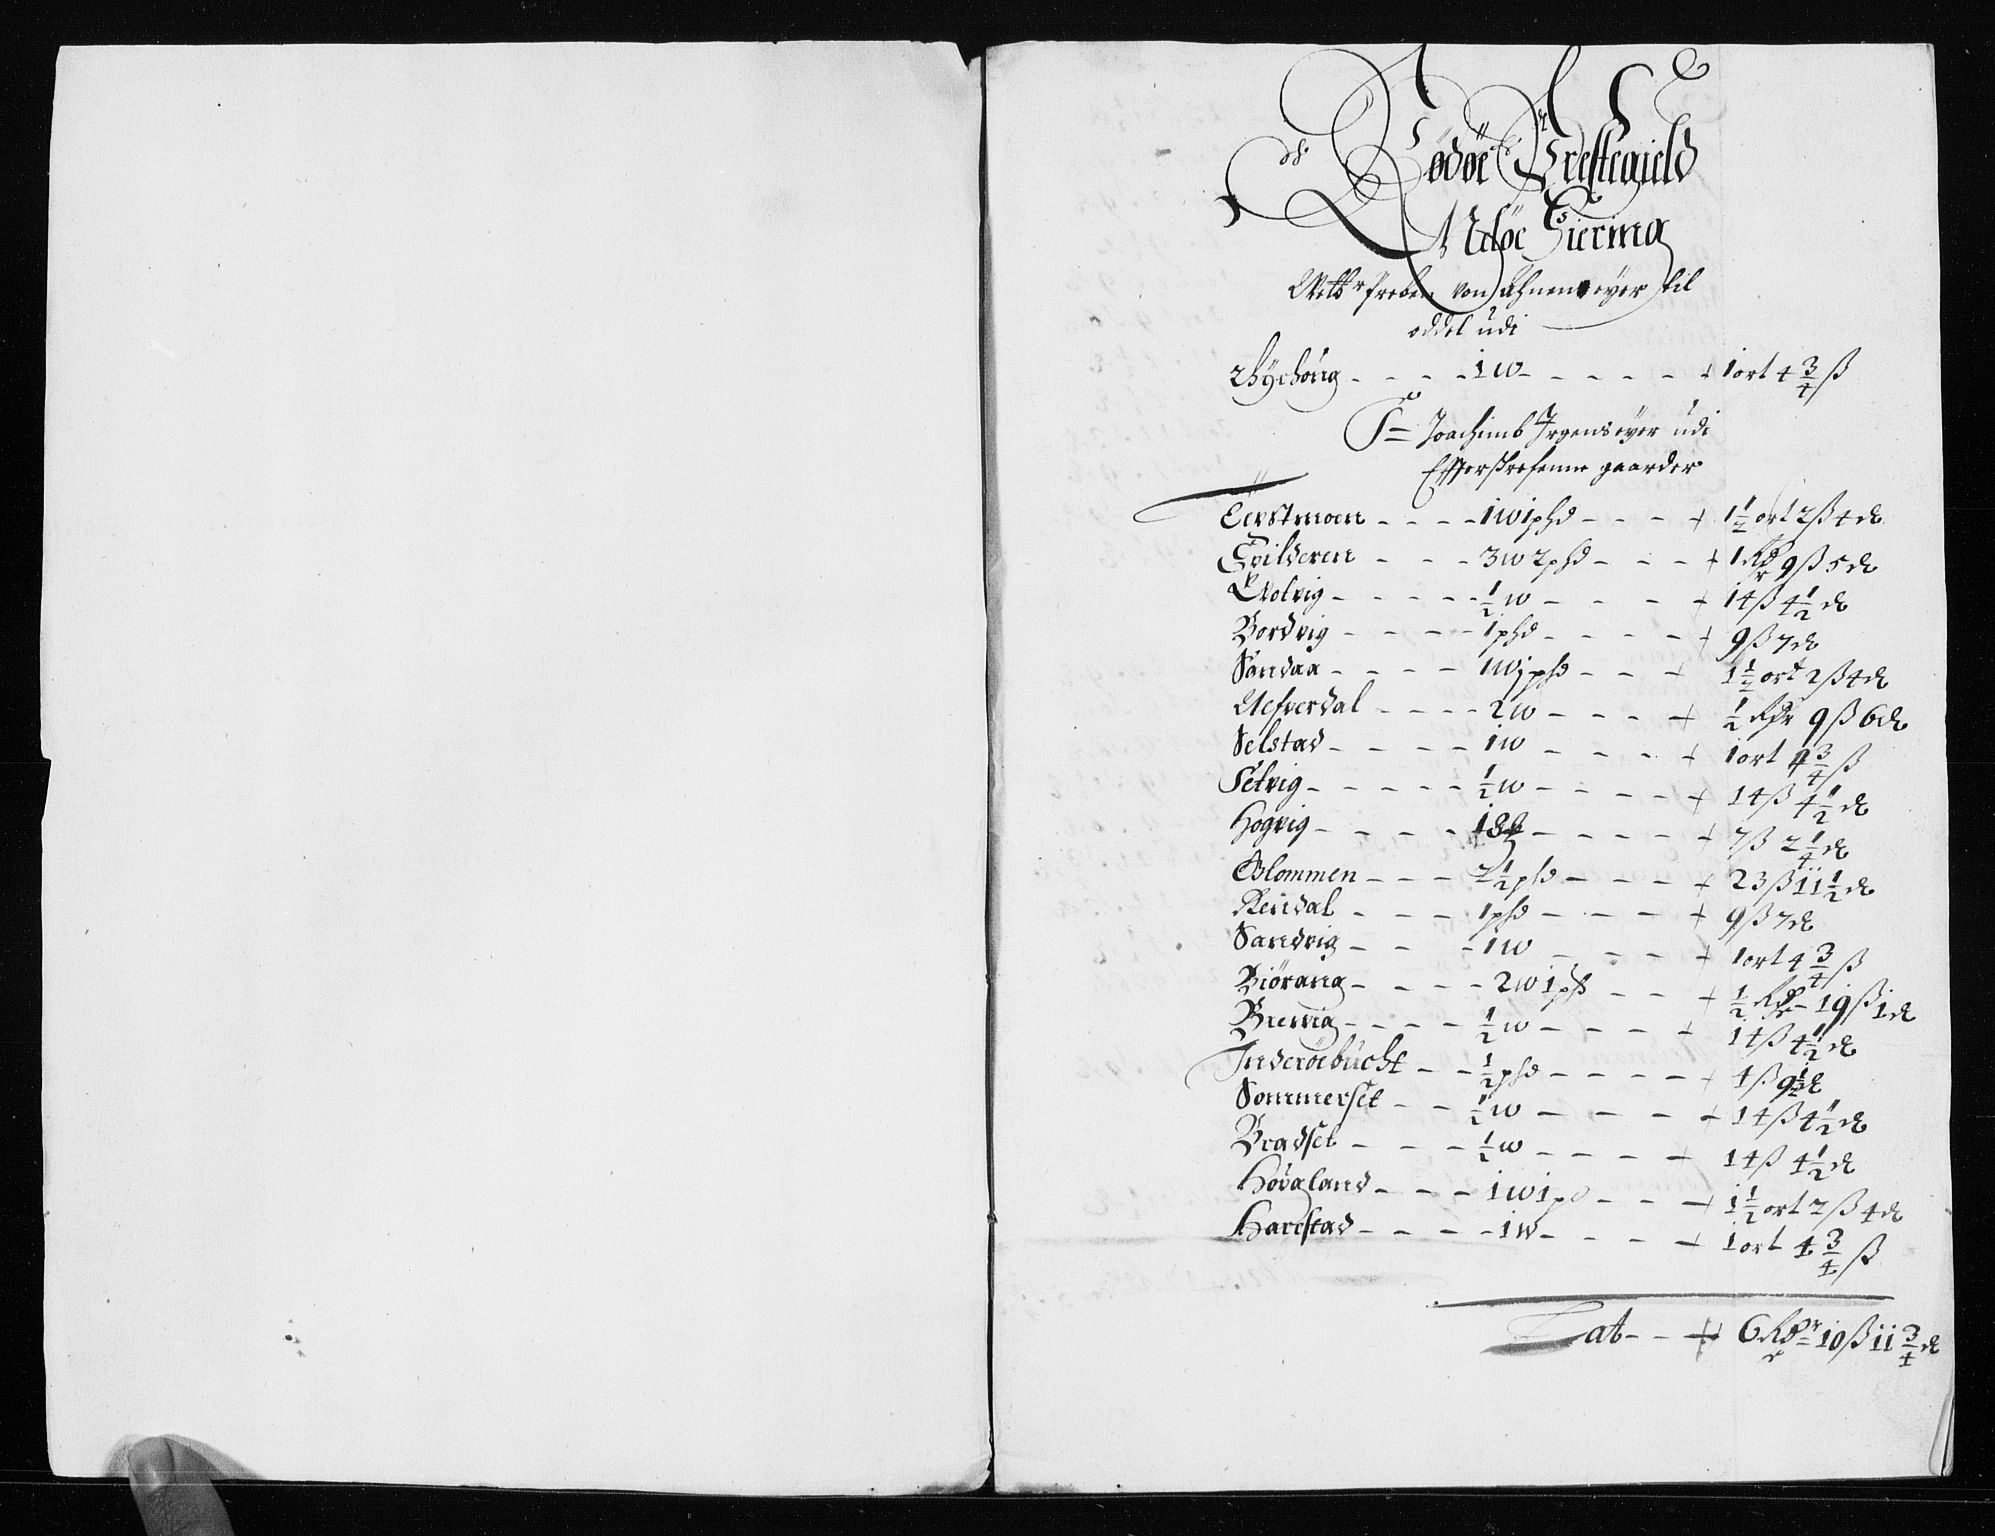 Rødøe Prestegield
Meløe Fiering
Welb: Preben von Ahnen eyer til
oddel udi
1 W - 1 ort 4 3/4 ß
Joachimb Irgens eyer udi
Effterschrefenne gaarder
1 W 1 phd - 1 1/2 ort 2 ß 4 d
Spilderen - 3 W 2 phd - 1 Rdr 9 ß 5 d
1/2 W - 14 ß 4 1/2 d
Bordvig - 1 phd - 9 ß 7 d
Sandaa - 1 W 1 phd - 1 1/2 ort 2 ß 4 d
Nefverdal - 2 W - 1/2 Rdr 9 ß 6 d
Selstad - 1 W - 1 ort 4 3/4 ß
Setvig - 1/2 W - 14 ß 4 1/2 d
Hogvig - 7 ß 2 1/4 d
Glommen - 2 1/2 phd - 23 ß 11 1/2 d
Reindal - 1 phd - 9 ß 7 d
Sandvig - 1 W - 1 ort 4 3/4 ß
Biörang - 2 W 1 phd - 1/2 Rdr 19 ß 1 d
Brevig - 1/2 W - 14 ß 4 1/2 d
Inderöebucht - 1/2 phd - 4 ß 9 1/2 d
Sommerset - 1/2 W - 14 ß 4 1/2 d
Bradset - 1/2 W - 14 ß 4 1/2 d
Høvgland - 1 W 1 p - 1 1/2 ort 2 ß 4 d
Harestad - 1 W - 1 ort 4 3/4 ß
Lat - 6 Rdr 10 ß 11 3/4 d